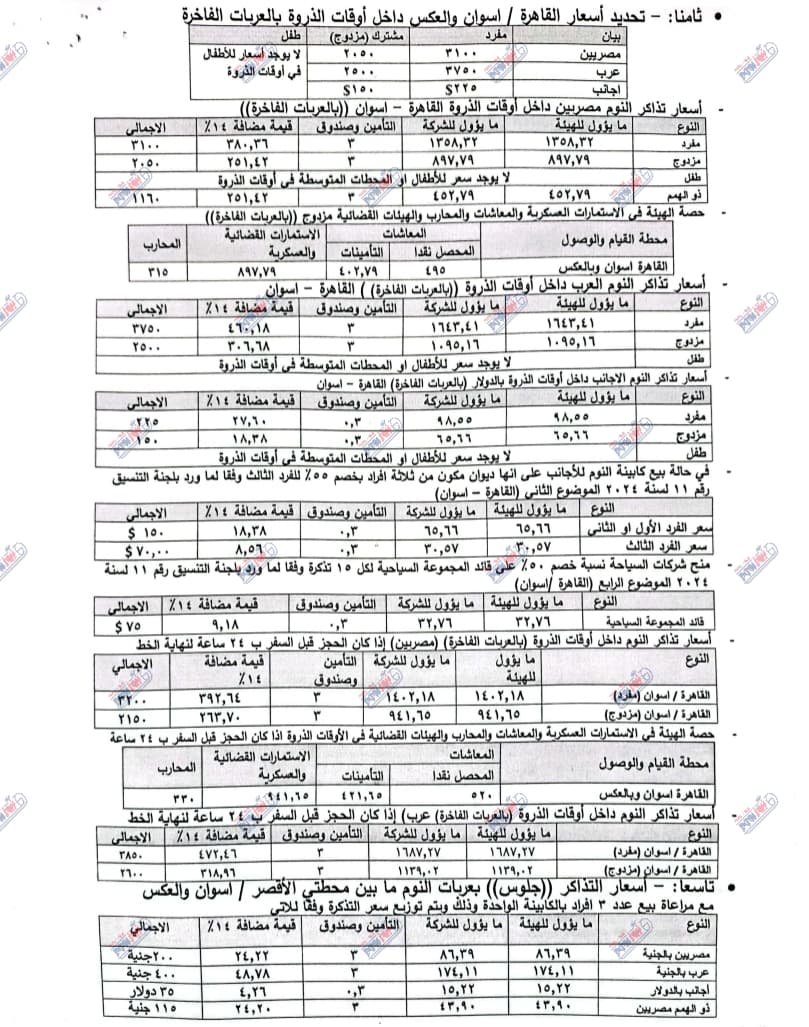 • ثامنا: - تحديد أسعار القاهرة / اسوان والعكس داخل أوقات الذروة بالعربات الفاخرة
بيان مفرد مشترك (مزدوج) طفل
مصريين ٣١٠٠ ٢٠٥٠ لا يوجد أسعار للأطفال
عرب ٣٧٥٠ ٢٥٠٠ في أوقات الذروة
اجانب ٢٢٥$ ١٥٠$
- أسعار تذاكر النوم مصريين داخل أوقات الذروة القاهرة – اسوان ((بالعربات الفاخرة))
النوع ما يؤول للهيئة ما يؤول للشركة التأمين وصندوق قيمة مضافة ١٤٪ الاجمالى
مفرد ١٣٥٨,٣٢ ١٣٥٨,٣٢ ٣ ٣٨٠,٣٦ ٣١٠٠
مزدوج ٨٩٧,٧٩ ٨٩٧,٧٩ ٣ ٢٥١,٤٢ ٢٠٥٠
طفل لا يوجد سعر للأطفال او المحطات المتوسطة فى أوقات الذروة
ذو الهمم ٤٥٢,٧٩ ٤٥٢,٧٩ ٣ ٢٥١,٤٢ ١١٦٠
- حصة الهيئة فى الاستمارات العسكرية والمعاشات والمحارب والهيئات القضائية مزدوج ((بالعربات الفاخرة))
محطة القيام والوصول المعاشات الاستمارات القضائية والعسكرية المحارب
المحصل نقدا التأمينات
القاهرة اسوان وبالعكس ٤٩٥ ٤٠٢,٧٩ ٨٩٧,٧٩ ٣١٥
- أسعار تذاكر النوم العرب داخل أوقات الذروة ((بالعربات الفاخرة)) القاهرة – اسوان
النوع ما يؤول للهيئة ما يؤول للشركة التأمين وصندوق قيمة مضافة ١٤٪ الاجمالى
مفرد ١٦٤٣,٤١ ١٦٤٣,٤١ ٣ ٤٦٠,١٨ ٣٧٥٠
مزدوج ١٠٩٥,١٦ ١٠٩٥,١٦ ٣ ٣٠٦,٦٨ ٢٥٠٠
طفل لا يوجد سعر للأطفال او المحطات المتوسطة فى أوقات الذروة
- أسعار تذاكر النوم الاجانب داخل أوقات الذروة بالدولار (بالعربات الفاخرة) القاهرة – اسوان
النوع ما يؤول للهيئة ما يؤول للشركة التأمين وصندوق قيمة مضافة ١٤٪ الاجمالى
مفرد ٩٨,٥٥ ٩٨,٥٥ ٠,٣ ٢٧,٦٠ ٢٢٥
مزدوج ٦٥,٦٦ ٦٥,٦٦ ٠,٣ ١٨,٣٨ ١٥٠
طفل لا يوجد سعر للأطفال او المحطات المتوسطة فى أوقات الذروة
- في حالة بيع كابينة النوم للأجانب على انها ديوان مكون من ثلاثة افراد بخصم ٥٥٪ للفرد الثالث وفقا لما ورد بلجنة التنسيق
رقم ١١ لسنة ٢٠٢٤ الموضوع الثانى (القاهرة – اسوان)
النوع ما يؤول للهيئة ما يؤول للشركة التأمين وصندوق قيمة مضافة ١٤٪ الاجمالى
سعر الفرد الأول او الثانى ٦٥,٦٦ ٦٥,٦٦ ٠,٣ ١٨,٣٨ ١٥٠ $
سعر الفرد الثالث ٣٠,٥٧ ٣٠,٥٧ ٠,٣ ٨,٥٦ ٧٠,٠٠ $
- منح شركات السياحة نسبة خصم ٥٠٪ على قائد المجموعة السياحية لكل ١٥ تذكرة وفقا لما ورد بلجنة التنسيق رقم ١١ لسنة
٢٠٢٤ الموضوع الرابع (القاهرة /اسوان)
النوع ما يؤول للهيئة ما يؤول للشركة التأمين وصندوق قيمة مضافة ١٤٪ الاجمالى
قائد المجموعة السياحية ٣٢,٧٦ ٣٢,٧٦ ٠,٣ ٩,١٨ ٧٥ $
- أسعار تذاكر النوم داخل أوقات الذروة (بالعربات الفاخرة) (مصريين) إذا كان الحجز قبل السفر ب ٢٤ ساعة لنهاية الخط
النوع ما يؤول للهيئة ما يؤول للشركة التأمين وصندوق قيمة مضافة ١٤٪ الاجمالي
القاهرة / اسوان (مفرد) ١٤٠٢,١٨ ١٤٠٢,١٨ ٣ ٣٩٢,٦٤ ٣٢٠٠
القاهرة / اسوان (مزدوج) ٩٤١,٦٥ ٩٤١,٦٥ ٣ ٢٦٣,٧٠ ٢١٥٠
- حصة الهيئة فى الاستمارات العسكرية والمعاشات والمحارب والهيئات القضائية فى الأوقات الذروة اذا كان الحجز قبل السفر ب ٢٤ ساعة
محطة القيام والوصول المعاشات الاستمارات القضائية والعسكرية المحارب
المحصل نقدا التأمينات
القاهرة اسوان وبالعكس ٥٢٠ ٤٢١,٦٥ ٩٤١,٦٥ ٣٣٠
- أسعار تذاكر النوم داخل أوقات الذروة (بالعربات الفاخرة) عرب) إذا كان الحجز قبل السفر ب ٢٤ ساعة لنهاية الخط
النوع ما يؤول للهيئة ما يؤول للشركة التأمين وصندوق قيمة مضافة ١٤٪ الاجمالى
القاهرة / اسوان (مفرد) ١٦٨٧,٢٧ ١٦٨٧,٢٧ ٣ ٤٧٢,٤٦ ٣٨٥٠
القاهرة / اسوان (مزدوج) ١١٣٩,٠٢ ١١٣٩,٠٢ ٣ ٣١٨,٩٦ ٢٦٠٠
• تاسعا: - أسعار التذاكر ((جلوس)) بعربات النوم ما بين محطتي الأقصر / اسوان والعكس
مع مراعاة بيع عدد ٣ افراد بالكابينة الواحدة وذلك ويتم توزيع سعر التذكرة وفقا للاتي
النوع ما يؤول للهيئة ما يؤول للشركة التأمين وصندوق قيمة مضافة ١٤٪ الاجمالي
مصريين بالجنية ٨٦,٣٩ ٨٦,٣٩ ٣ ٢٤,٢٢ ٢٠٠جنية
عرب بالجنية ١٧٤,١١ ١٧٤,١١ ٣ ٤٨,٧٨ ٤٠٠ جنية
أجانب بالدولار ١٥,٢٢ ١٥,٢٢ ٠,٣ ٤,٢٦ ٣٥ دولار
ذو الهمم مصريين ٤٣,٩٠ ٤٣,٩٠ ٣ ٢٤,٢٠ ١١٥ جنية